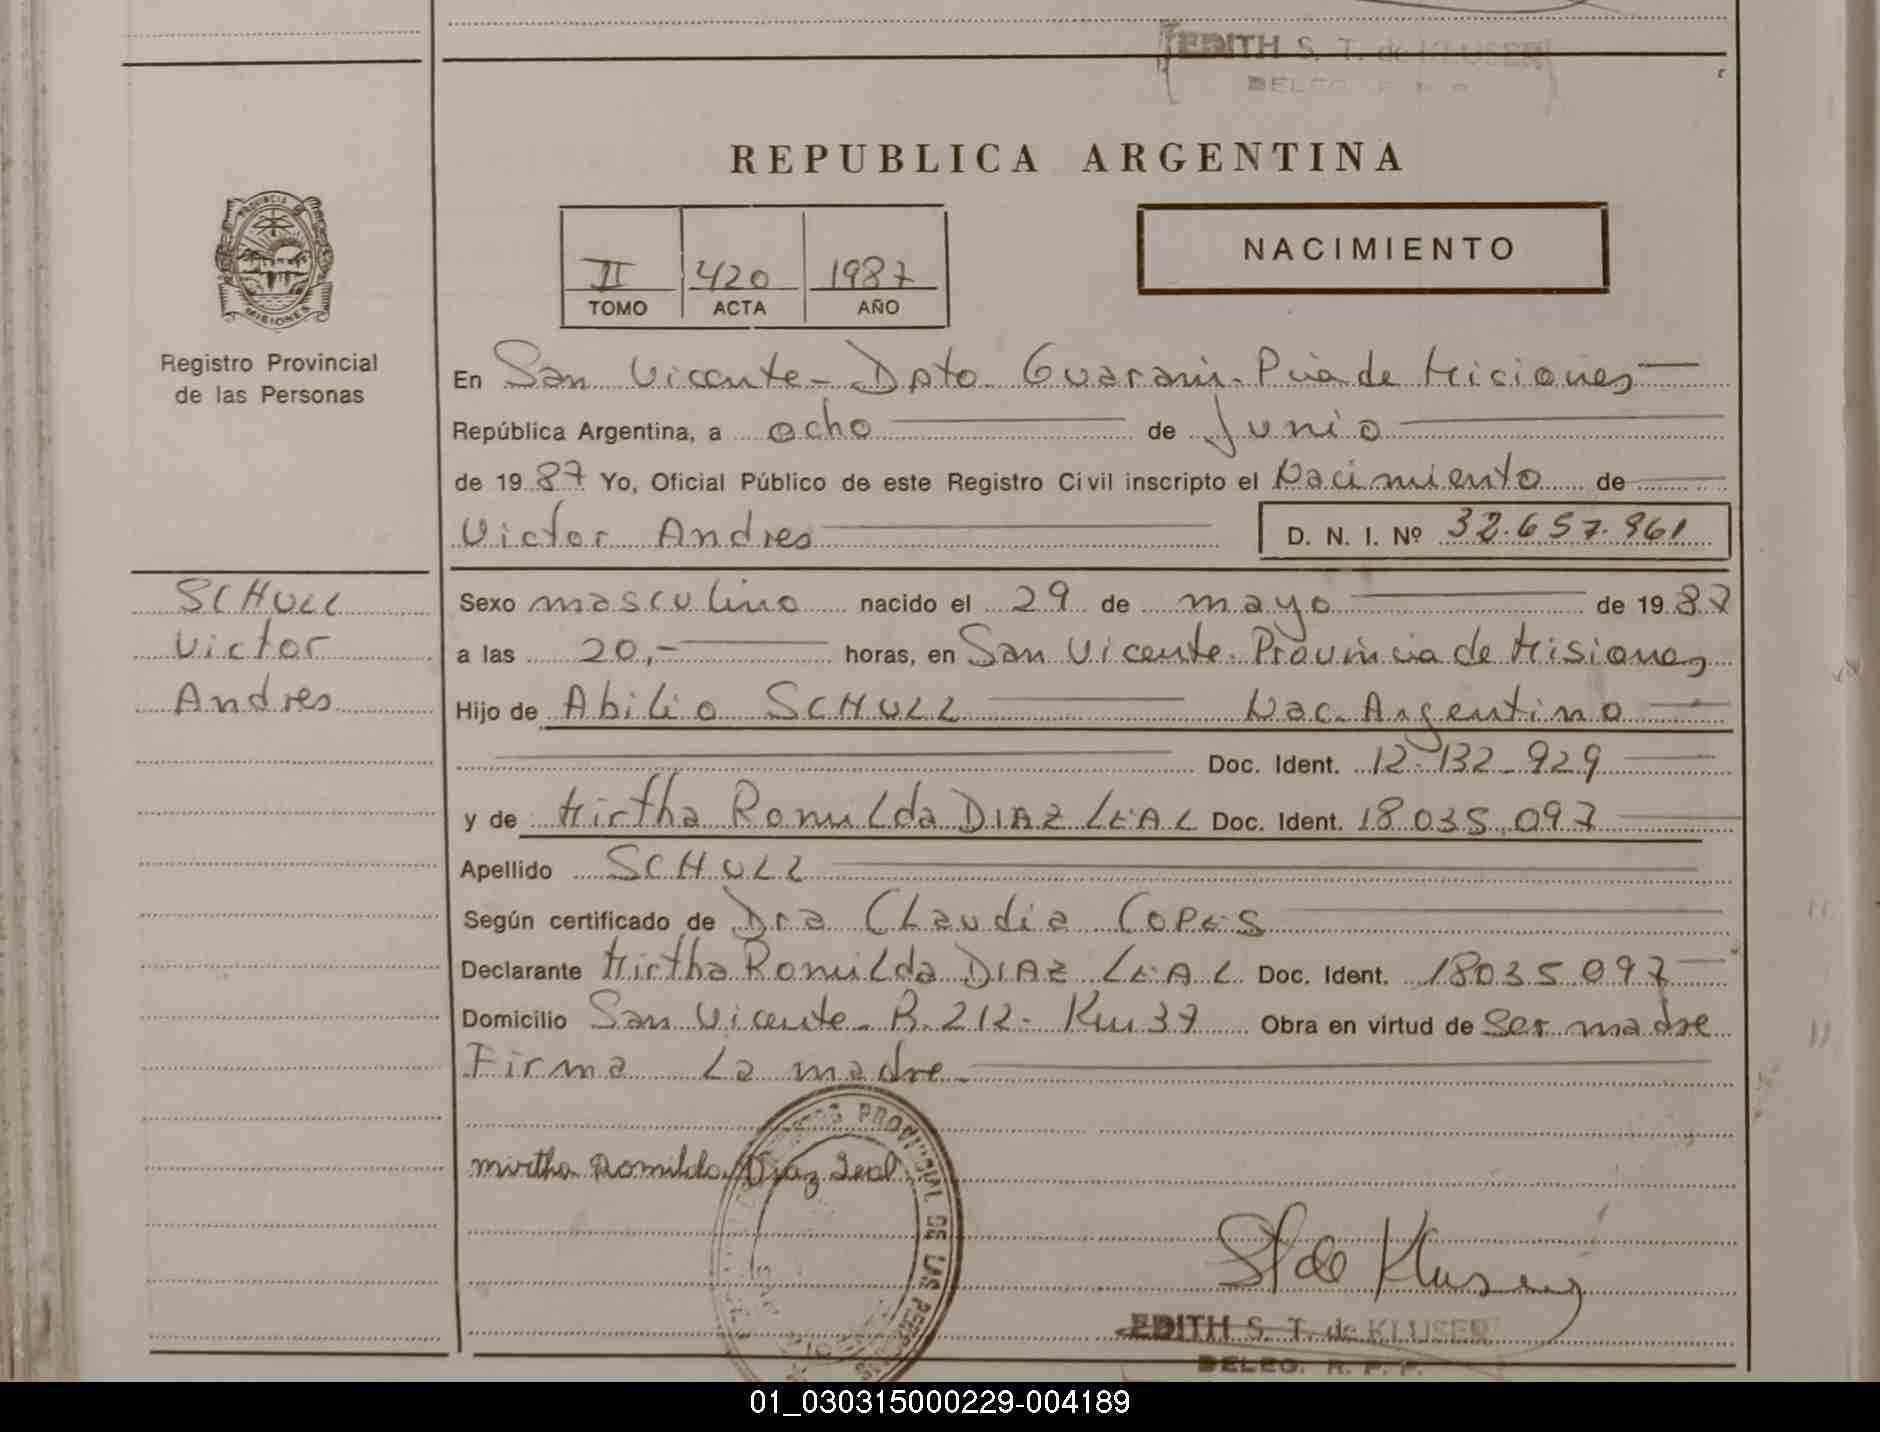 EDITH S. T. de KLUSER
DELEG. R. P. P.
REPUBLICA ARGENTINA
PROVINCIA
MISIONES
Registro Provincial
de las Personas
II 420 1987
TOMO ACTA AÑO
NACIMIENTO
En San Vicente - Dpto Guarani - Pcia de Misiones
República Argentina, a ocho de Junio
de 1987 Yo, Oficial Público de este Registro Civil inscripto el Nacimiento de
Victor Andres D. N. I. Nº 32.657.961
SCHULL
Victor
Andres
Sexo masculino nacido el 29 de mayo de 1987
a las 20,- horas, en San Vicente - Provincia de Misiones
Hijo de Abilio SCHULL Nac. Argentino
Doc. Ident. 12-132-929
y de Mirtha Romilda DIAZ LEAL Doc. Ident. 18.035.097
Apellido SCHULL
Según certificado de Dra Claudia COPES
Declarante Mirtha Romilda DIAZ LEAL Doc. Ident. 18035.097
Domicilio San Vicente - R. 212 - Km 37 Obra en virtud de Ser madre
Firma La madre -
Mirtha Romilda Diaz Leal
PROVINCIAL DE LAS PERSONAS
ST de Kluser
EDITH S. T. de KLUSER
DELEG. R. P. P.
01_030315000229-004189